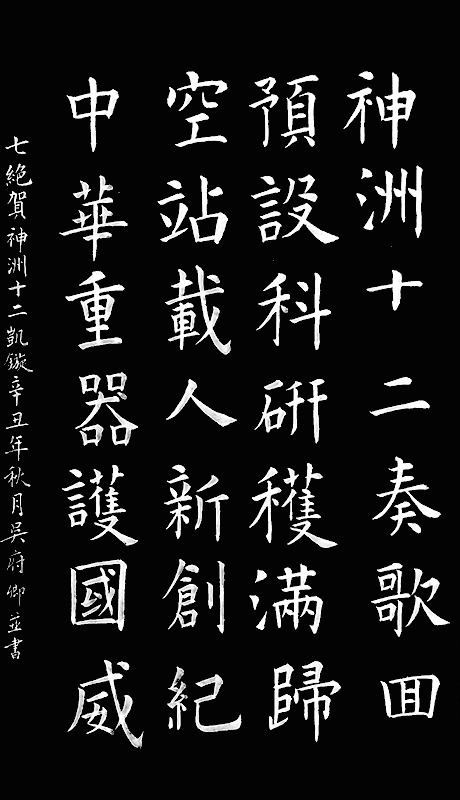 神洲十二奏歌囬
預設科研穫滿歸
空站載人新創紀
中華重器護國威
七絶賀神洲十二凱鏇辛丑年秋月吳府卿並書